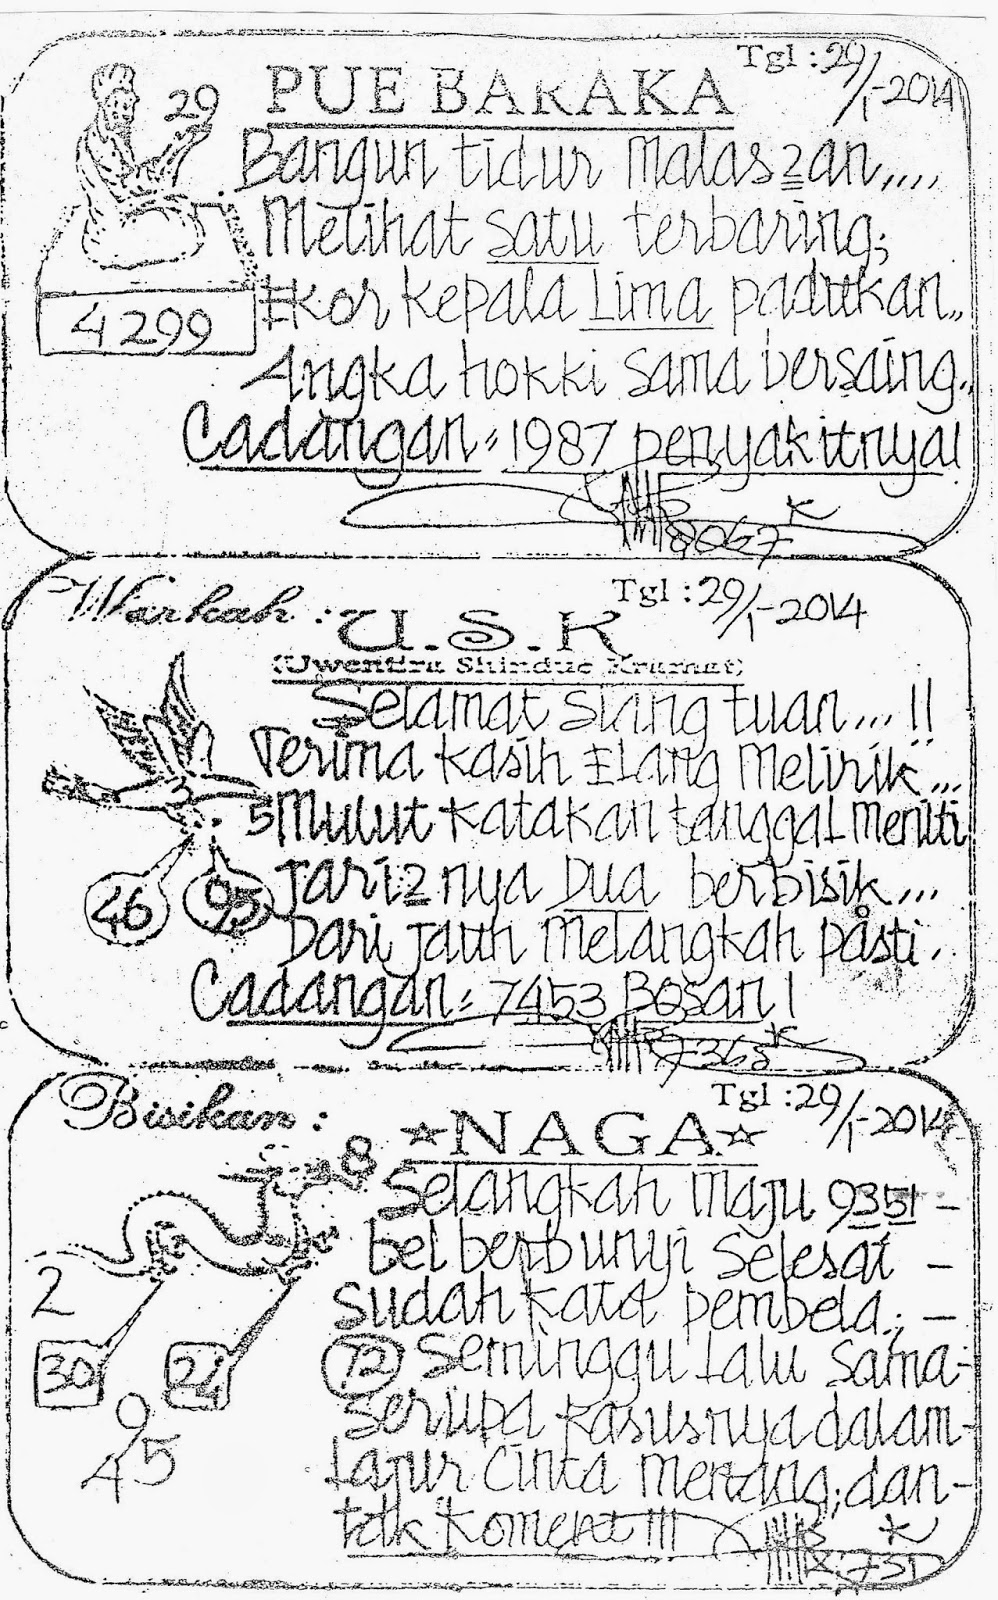 Tgl : 29/1-2014
PUE BARAKA
29
Bangun tidur malas2an,,,,
Melihat satu terbaring;
Ekor kepala Lima padukan,,
4299
Angka hokki sama bersaing,,
Cadangan = 1987 penyakitnya!
8067
K
Warkah :
Tgl : 29/1-2014
U.S.K
(Uwentira Shindue Kramat)
Selamat siang tuan... !!
Terima kasih Elang Melirik...
5 Mulut katakan tanggal Meniti
46 95
Jari2nya Dua berbisik...
Dari jauh Melangkah pasti.
Cadangan = 7453 Bosan!
7365 K
Bisikan :
Tgl : 29/1-2014
☆NAGA☆
8
Selangkah maju 9351 -
bel berbunyi Selesai -
2
sudah kata pembela; -
30 24
72 Seminggu Lalu Sama-
9/45
Serupa kasusnya dalam-
Lajur Cinta Menang; dan-
tak koment !!!
K